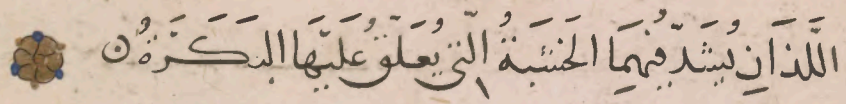 اللَّذَانِ يُشَدُّ فِيهِمَا الخَشَبَةُ الَّتِي يُعَلَّقُ عَلَيْهَا البَكَرَةُ